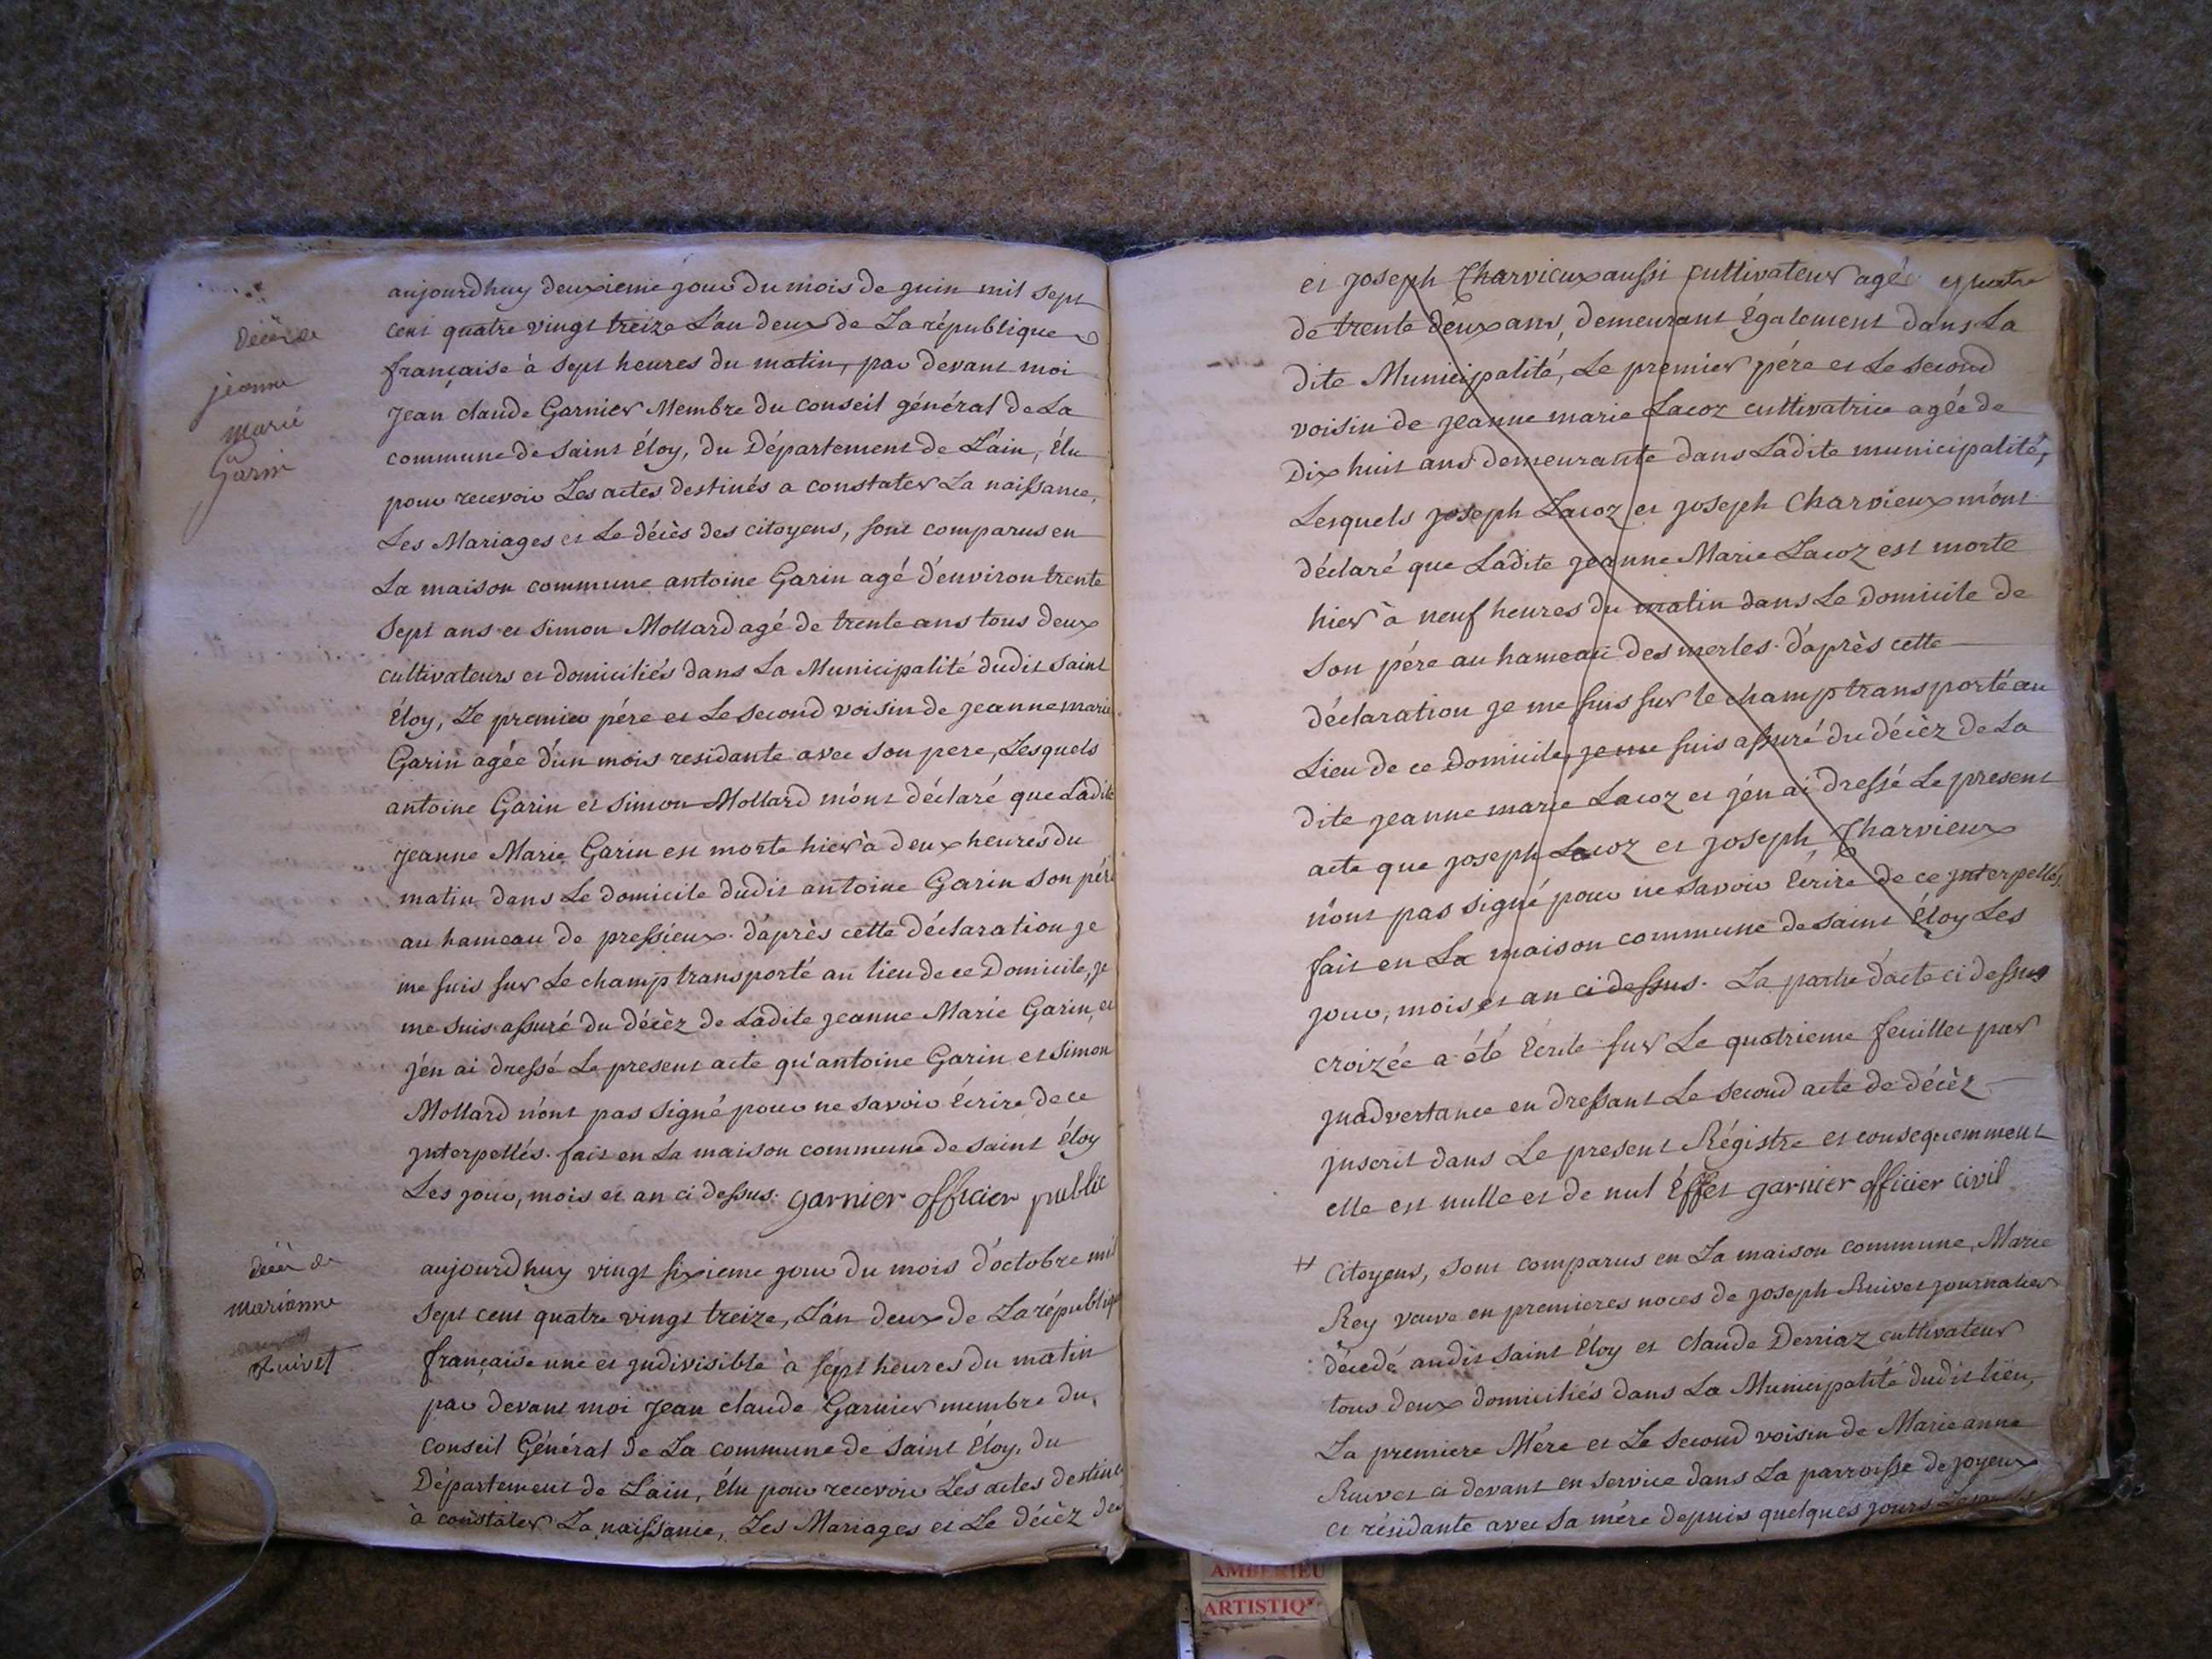 décèz de
jeanne
marie
Garin
aujourdhuy deuxieme jour du mois de juin mil sept
cent quatre vingt treize L'an deux de La république
française à sept heures du matin, par devant moi
Jean claude Garnier Membre du Conseil général de La
commune de saint Éloy, du Département de L'ain, Élu
pour recevoir Les actes destinés a constater La naissance,
Les Mariages et Le décès des citoyens, sont comparus en
La maison commune antoine Garin agé d'environ trente
sept ans et simon Mollard agé de trente ans tous deux
cultivateurs et domiciliés dans La Municipalité dudit saint
Éloy, Le premier pére et Le second voisin de jeanne marie
Garin agée d'un mois residante avec son pere, Lesquels
antoine Garin et simon Mollard m'ont déclaré que Ladite
jeanne Marie Garin est morte hier à deux heures du
matin dans Le domicile dudit antoine Garin son pére
au hameau de pressieux. d'après cette déclaration je
me suis sur Le champ transporté au lieu de ce Domicile, je
me suis assuré du décèz de Ladite jeanne Marie Garin, et
j'en ai dressé Le present acte qu'antoine Garin et simon
Mollard n'ont pas signé pour ne savoir Écrire de ce
jnterpellés. fait en La maison commune de saint Éloy
Les jour, mois et an ci dessus. garnier officier public
décèz de
marianne
Ruivet
aujourdhuy vingt sixieme jour du mois d'octobre mil
sept cent quatre vingt treize, L'an deux de La république
française une et jndivisible à sept heures du matin
par devant moi Jean claude Garnier membre du
conseil Général de La commune de saint Éloy, du
Département de L'ain, Élu pour recevoir Les actes destinés
à constater La naissance, Les Mariages et Le décèz des
et joseph Charvieux aussi cultivateur agé
de trente deux ans, demeurant Également dans La
dite Municipalité, Le premier pére et Le second
voisin de jeanne marie Lacoz cultivatrice agée de
Dix huit ans demeurante dans Ladite municipalité,
Lesquels joseph Lacoz et joseph Charvieux m'ont
déclaré que Ladite jeanne Marie Lacoz est morte
hier à neuf heures du matin dans Le Domicile de
son pére au hameau des merles. d'après cette
déclaration je me suis sur le champ transporté au
Lieu de ce Domicile, je me suis assuré du décèz de La
dite jeanne marie Lacoz et j'en ai dressé Le present
acte que joseph Lacoz et joseph Charvieux
n'ont pas signé pour ne savoir Écrire de ce jnterpellés.
fait en La maison commune de saint Éloy Les
jour, mois et an ci dessus. La partie d'acte ci dessus
croizée a été Écrite sur Le quatrieme feuillet par
jnadvertance en dressant Le second acte de décèz
jnscrit dans Le present Régistre et consequemment
elle est nulle et de nul Éffet garnier officier civil
# Citoyens, sont comparus en La maison commune, Marie
Rey veuve en premieres noces de joseph Ruivet journalier
décedé audit saint Éloy et claude Derriaz cultivateur
tous deux domiciliés dans La Municipalité dudit lieu,
La premiere Mére et Le second voisin de Marie anne
Ruivet ci devant en service dans La parroisse de joyeux
et résidante avec sa mére depuis quelques jours Lesquels
AMBERIEU
ARTISTIQ